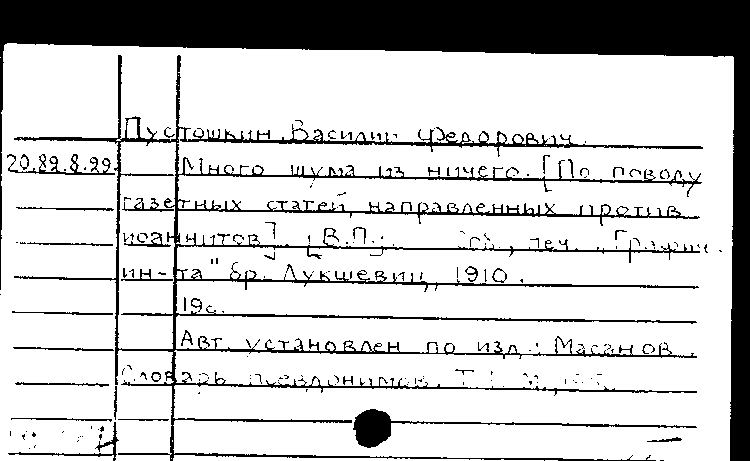 Пустошкин, Василий Федорович.
20.89.8.99. Много шума из ничего. [По поводу
газетных статей, направленных против
иоаннитов]. [В.П.]. Спб., печ. "Графич.
ин-та" бр. Лукшевиц, 1910.
19с.
Авт. установлен по изд.: Масанов.
Словарь псевдонимов. Т.